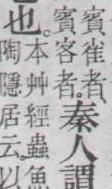 賓雀者
賓客者秦人謂
也
本艸經蟲魚
陶隱居云以